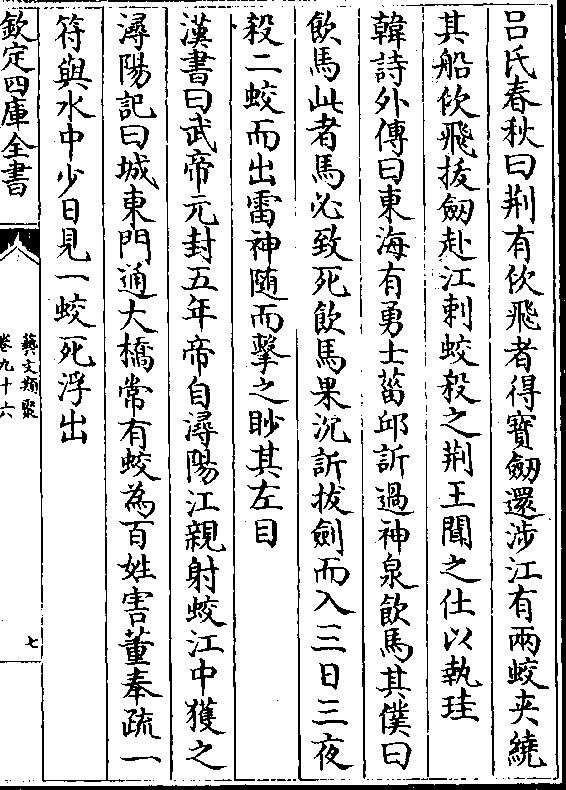 呂氏春秋曰荆有佽飛者得寳劒還涉江有兩蛟夾繞
其船佽飛拔劒赴江刺蛟殺之荆王聞之仕以執珪
韓詩外傳曰東海有勇士菑邱訢過神泉飲馬其僕曰
飲馬此者馬必致死飲馬果沉訢拔劍而入三日三夜
殺二蛟而出雷神随而擊之眇其左目
漢書曰武帝元封五年帝自潯陽江親射蛟江中獲之
潯陽記曰城東門通大橋常有蛟為百姓害董奉疏一
符與水中少日見一蛟死浮出
欽定四庫全書
藝文類聚
卷九十六
七